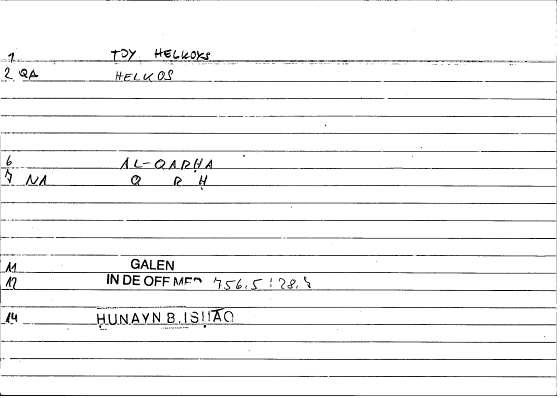 1 TOY HELKOYS
2 QA HELKOS
6 AL-QARḤA
7 NA Q R Ḥ
11 GALEN
12 IN DE OFF MED 756.5 : 28.8
14 ḤUNAYN B. ISḤĀQ